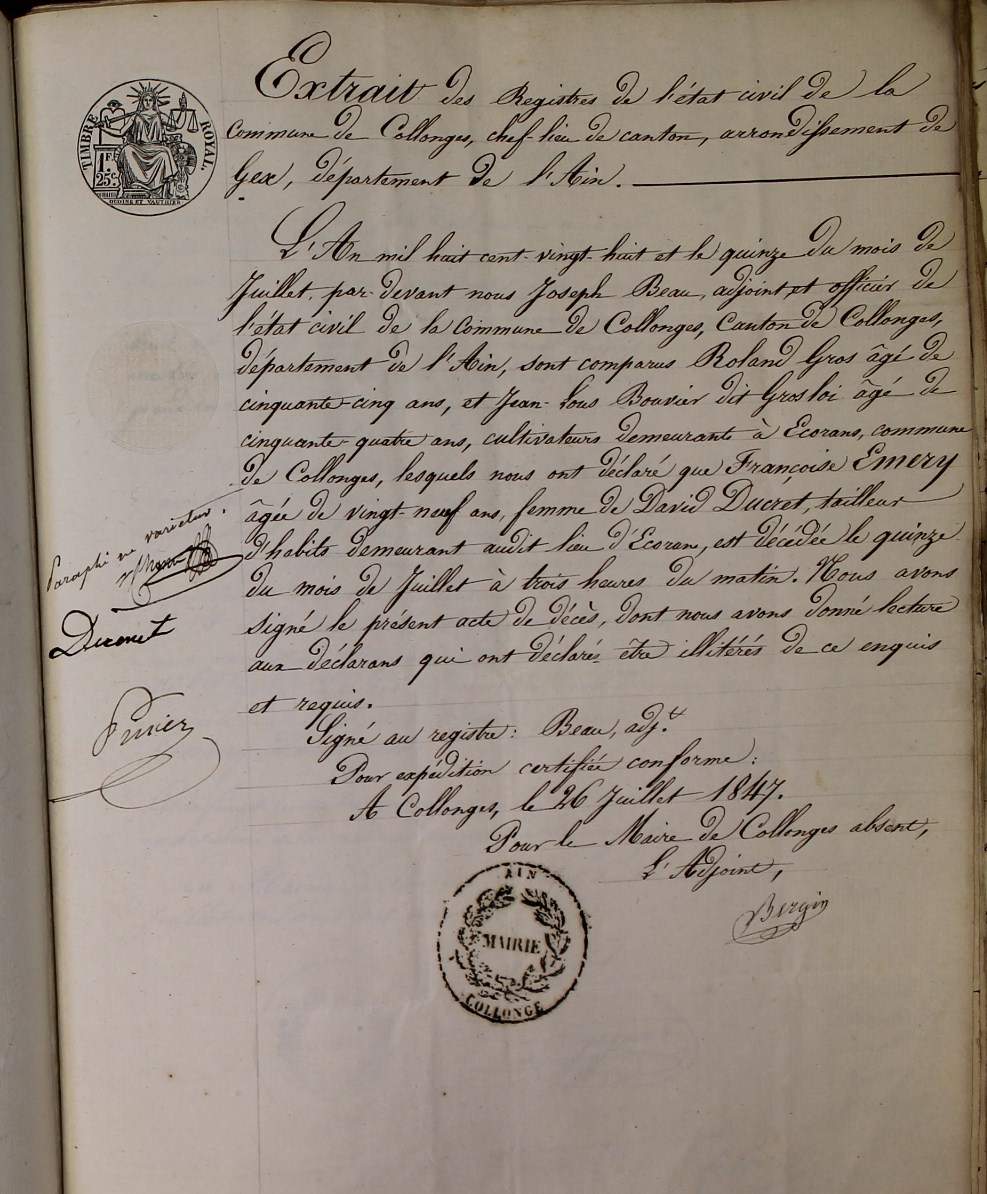 TIMBRE ROYAL.
1F.
25C.
Extrait des Registres de l'état civil de la
Commune de Collonges, chef-lieu de canton, arrondissement de
Gex, département de l'Ain.
L'An mil huit cent-vingt-huit et le quinze du mois de
Juillet, par-devant nous Joseph Beau, adjoint et officier de
l'état civil de la Commune de Collonges, Canton de Collonges,
département de l'Ain, sont comparus Roland Gros âgé de
cinquante-cinq ans, et Jean-Lous Bouvier dit Grosloi âgé de
cinquante-quatre ans, cultivateurs demeurant à Ecorans, commune
de Collonges, lesquels nous ont déclaré que Françoise Emery
âgée de vingt-neuf ans, femme de David Ducret, tailleur
d'habits demeurant audit lieu d'Ecoran, est décédée le quinze
du mois de Juillet à trois heures du matin. Nous avons
signé le présent acte de décès, dont nous avons donné lecture
aux déclarans qui ont déclarés être illitérés de ce enquis
et requis.
Signé au registre: Beau, adj.t
Pour expédition certifiée conforme:
A Collonges, le 26 Juillet 1847.
Pour le Maire de Collonges absent,
L'Adjoint,
Paraphé ne varietur.
AIN
MAIRIE
COLLONGE